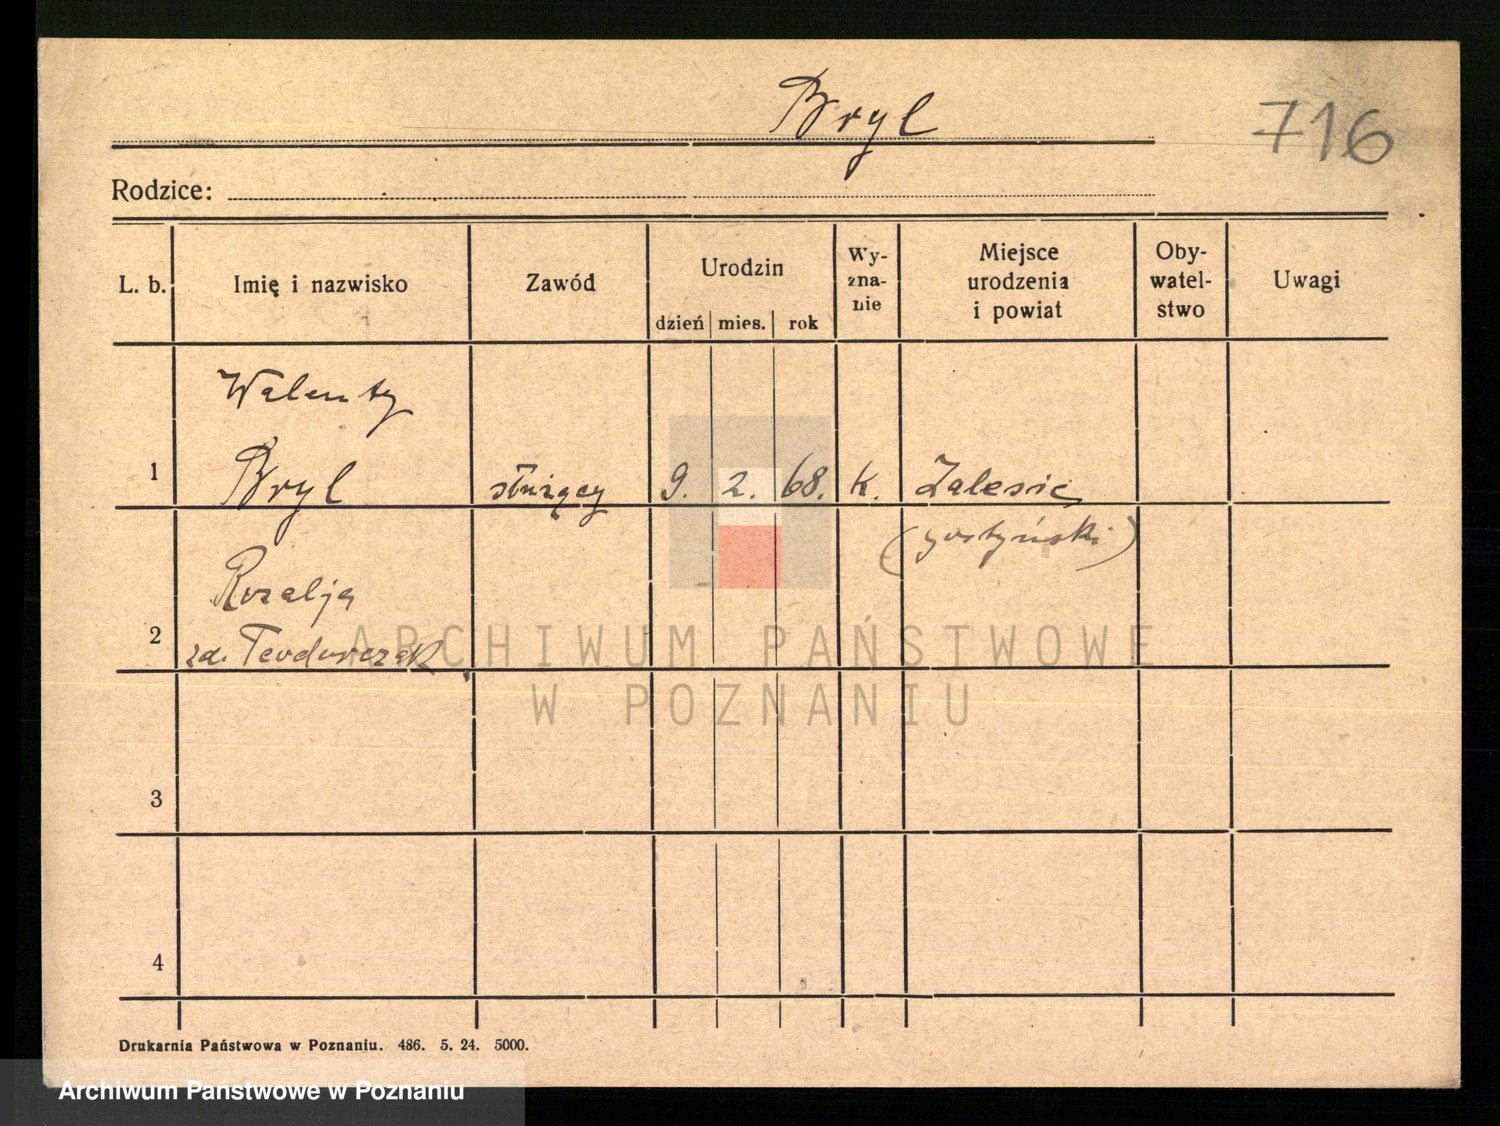 Bryl
716
Rodzice:
L. b. Imię i nazwisko Zawód Urodzin dzień mies. rok Wy-zna-nie Miejsce urodzenia i powiat Oby-watel-stwo Uwagi
Walenty
1 Bryl służący 9. 2. 68. k. Zalesie
(gostyński)
Rozalja
2 zd. Teodorczak
ARCHIWUM PAŃSTWOWE
W POZNANIU
3
4
Drukarnia Państwowa w Poznaniu. 486. 5. 24. 5000.
Archiwum Państwowe w Poznaniu